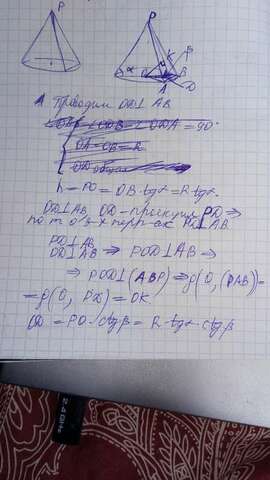 P
P
K
β
α
O
B
A
D
1 Проводим OD⊥AB
∠ODB = ∠ODA = 90°
OA=OB=R
OD общая
h = PO = OB·tgα = R·tgα.
OD⊥AB, OD – проекция PD ⇒
по т о 3-х перп-ах PD⊥AB
PD⊥AB
OD⊥AB ⇒ POD⊥AB ⇒
⇒ POD⊥(ABP) ⇒ ρ(O, (PAB)) =
= ρ(O, PD) = OK
OD = PO·ctgβ = R·tgα·ctgβ
2.4GHz